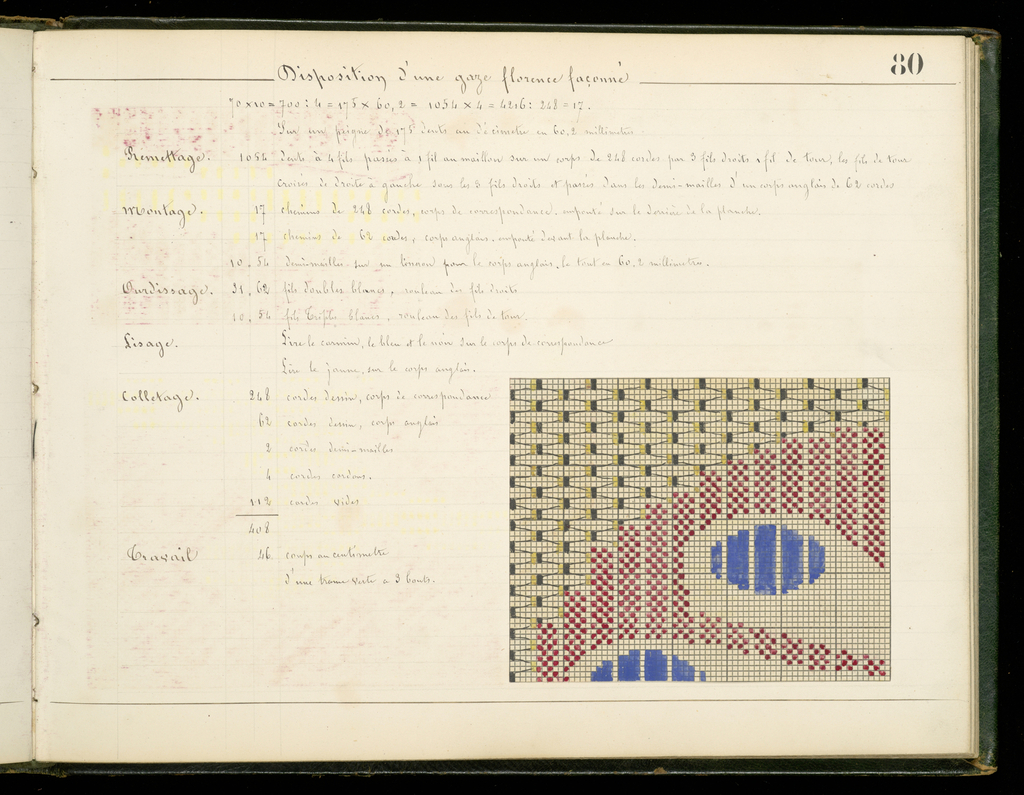 80
Disposition d'une gaze florence façonné
70 x 10 = 700 : 4 = 175 x 60,2 = 1054 x 4 = 4216 : 248 = 17.
Sur un peigne de 175 dents au décimetre en 60,2 millimetres
Remettage. 1054 dents à 4 fils passés à 1 fil au maillon sur un corps de 248 cordes par 3 fils droits 1 fil de tour, les fils de tour
croisés de droite à gauche sous les 3 fils droits et passés dans les demi-mailles d'un corps anglais de 62 cordes
Montage. 17 chemins de 248 cordes, corps de correspondance. empouté sur le derrière de la planche.
17 chemins de 62 cordes, corps anglais. empouté devant la planche.
10.54 demi-mailles sur un lisseron pour le corps anglais, le tout en 60,2 millimetres.
Ourdissage. 31.62 fils doubles blancs, rouleau des fils droits
10.54 fils triples blancs, rouleau des fils de tour.
Lisage. Lire le carmin, le bleu et le noir sur le corps de correspondance
Lire le jaune, sur le corps anglais.
Colletage. 248 cordes dessin, corps de correspondance
62 cordes dessin, corps anglais
2 cordes demi-mailles
4 cordes cordons.
112 cordes vides
408
Travail 46 coups au centimetre
d'une trame verte a 3 bouts.